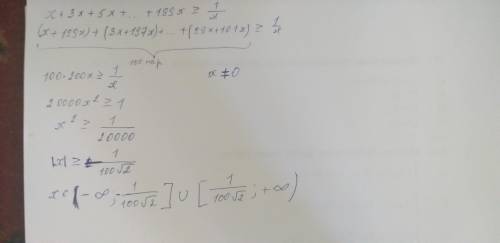 x + 3x + 5x + ... + 199x ≥ 1/x
(x + 199x) + (3x + 197x) + ... + (99x + 101x) ≥ 1/x
100 пар
100·200x ≥ 1/x x ≠ 0
20000x² ≥ 1
x² ≥ 1/20000
|x| ≥ 1/100√2
x ∈ (-∞; -1/100√2] ∪ [1/100√2; +∞)